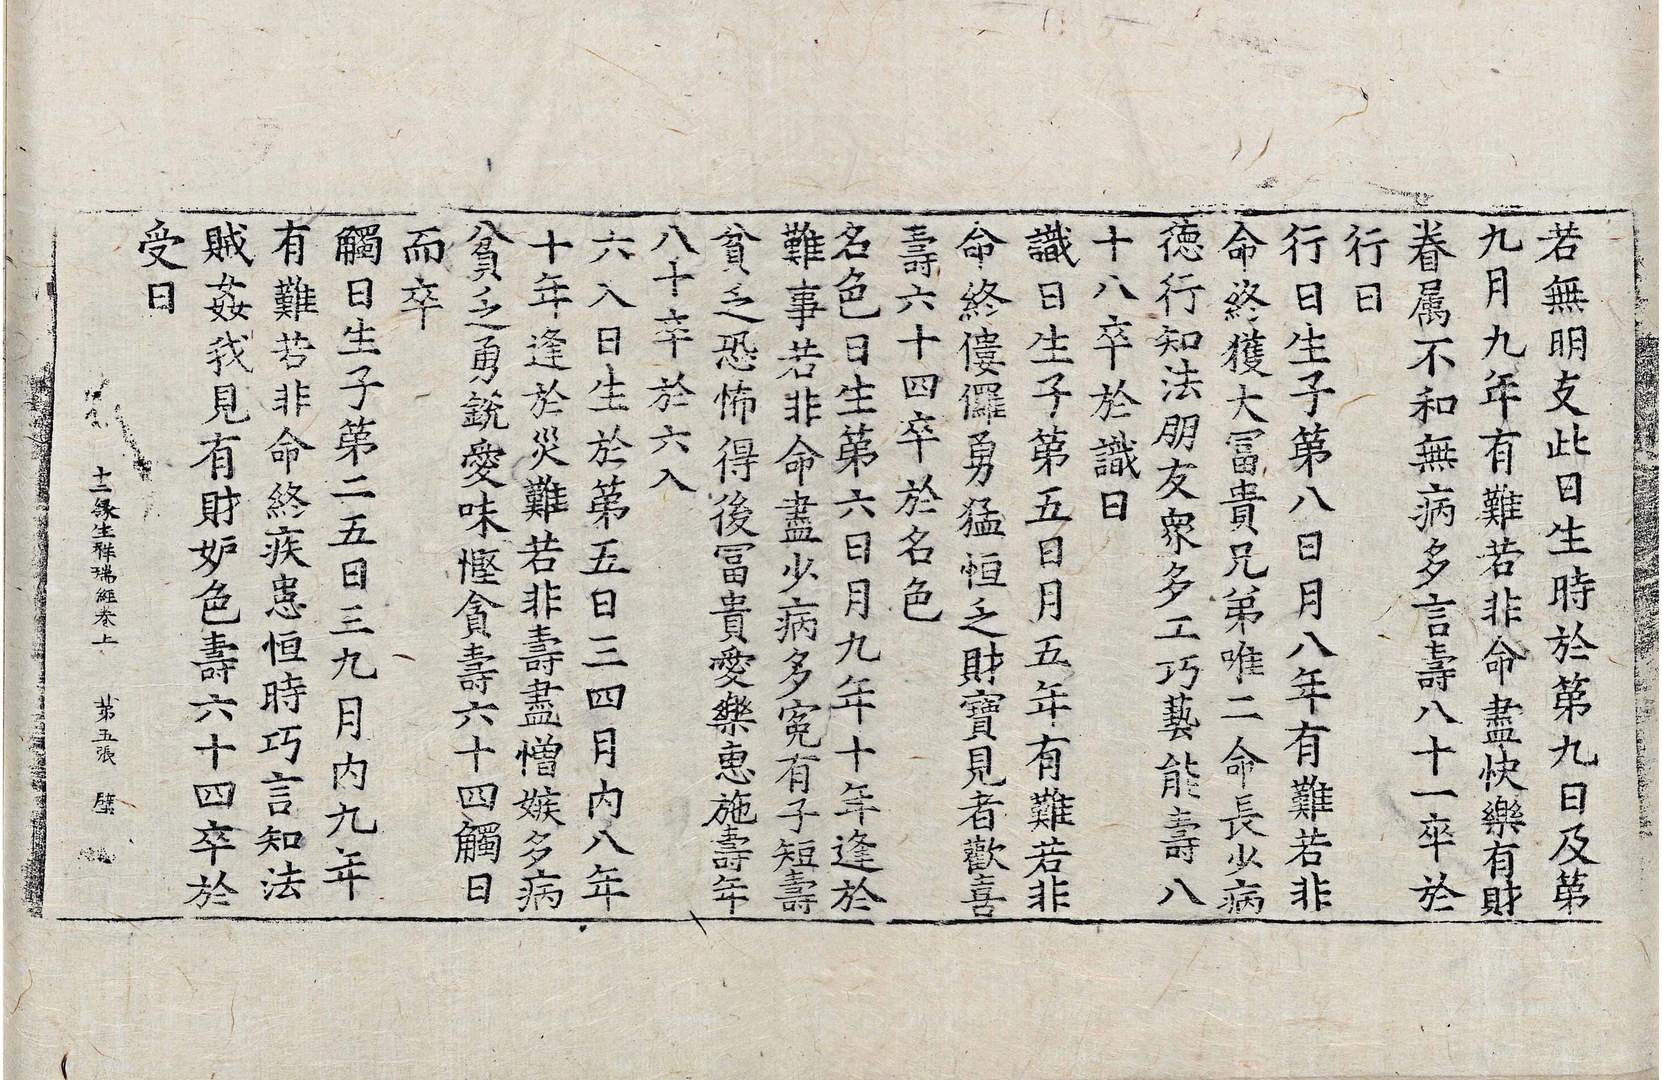 若無明支此日生時於第九日及第
九月九年有難若非命盡快樂有財
眷属不和無病多言壽八十一卒於
行日
行日生子第八日月八年有難若非
命終獲大冨貴兄弟唯二命長少病
徳行知法朋友衆多工巧藝能壽八
十八卒於識日
識日生子第五日月五年有難若非
命終僂儸勇猛恒乏財寶見者歡喜
壽六十四卒於名色
名色日生第六日月九年十年逢於
難事若非命盡少病多寃有子短壽
貧乏恐怖得後冨貴愛樂惠施壽年
八十卒於六入
六入日生於第五日三四月内八年
十年逢於災難若非壽盡憎嫉多病
貧乏勇銳愛味慳貪壽六十四觸日
而卒
觸日生子第二五日三九月内九年
有難若非命終疾恚恒時巧言知法
賊姦我見有財妒色壽六十四卒於
受日
十二緣生祥瑞經卷上 第五張 壁